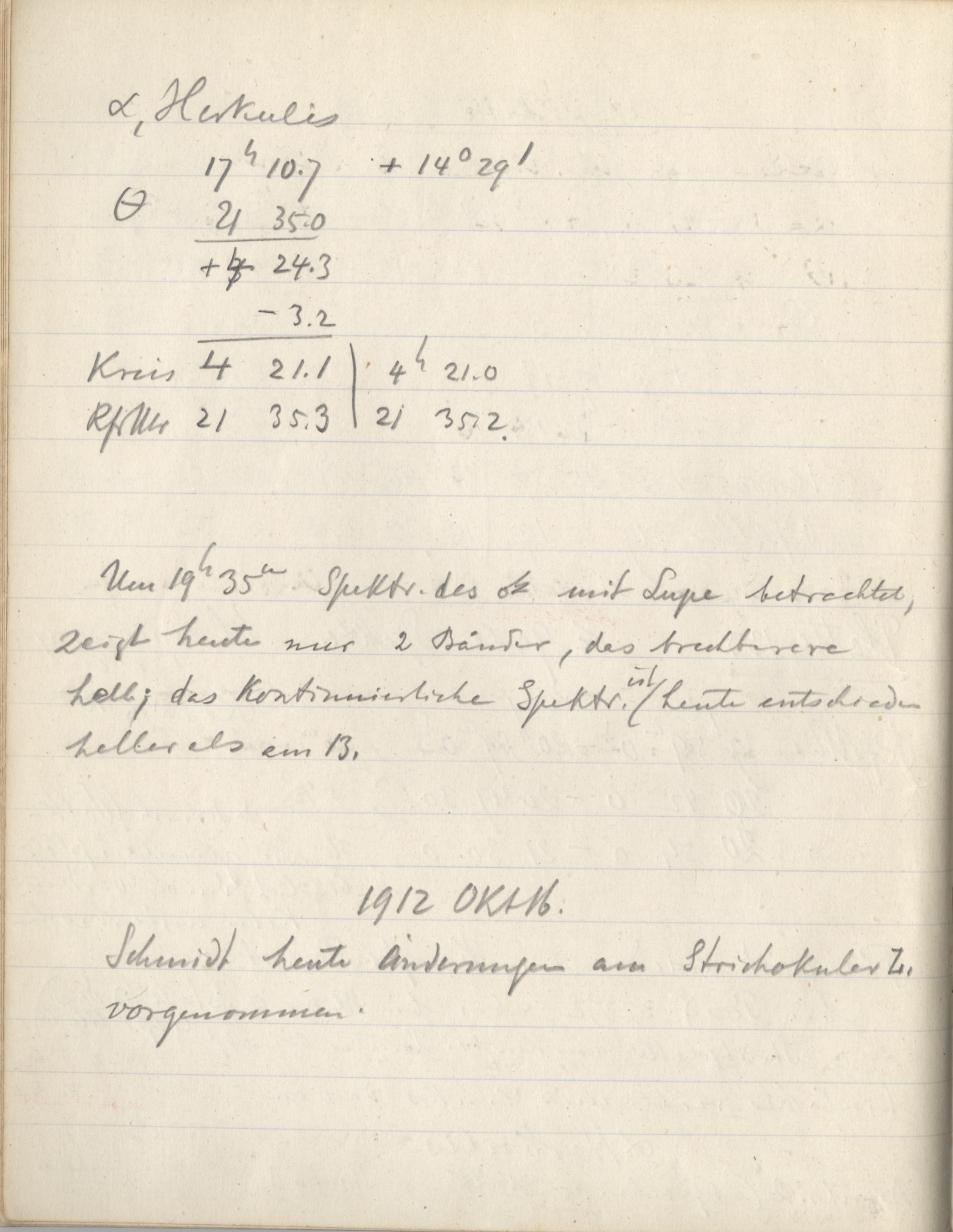 α, Herkulis
17ʰ 10.7 + 14° 29'
θ 21 35.0
+ 4 24.3
- 3.2
Kreis 4 21.1 | 4ʰ 21.0
21 35.3 | 21 35.2.
Um 19ʰ 35ᵐ Spektr. des mit Lupe betrachtet,
zeigt heute nur 2 Bänder, das brechbarere
hell; das kontinuierliche Spektr. ist heute entschieden
heller als am 13.
1912 OKT 16.
Schmidt heute Änderungen am Strichokular Z.
vorgenommen.